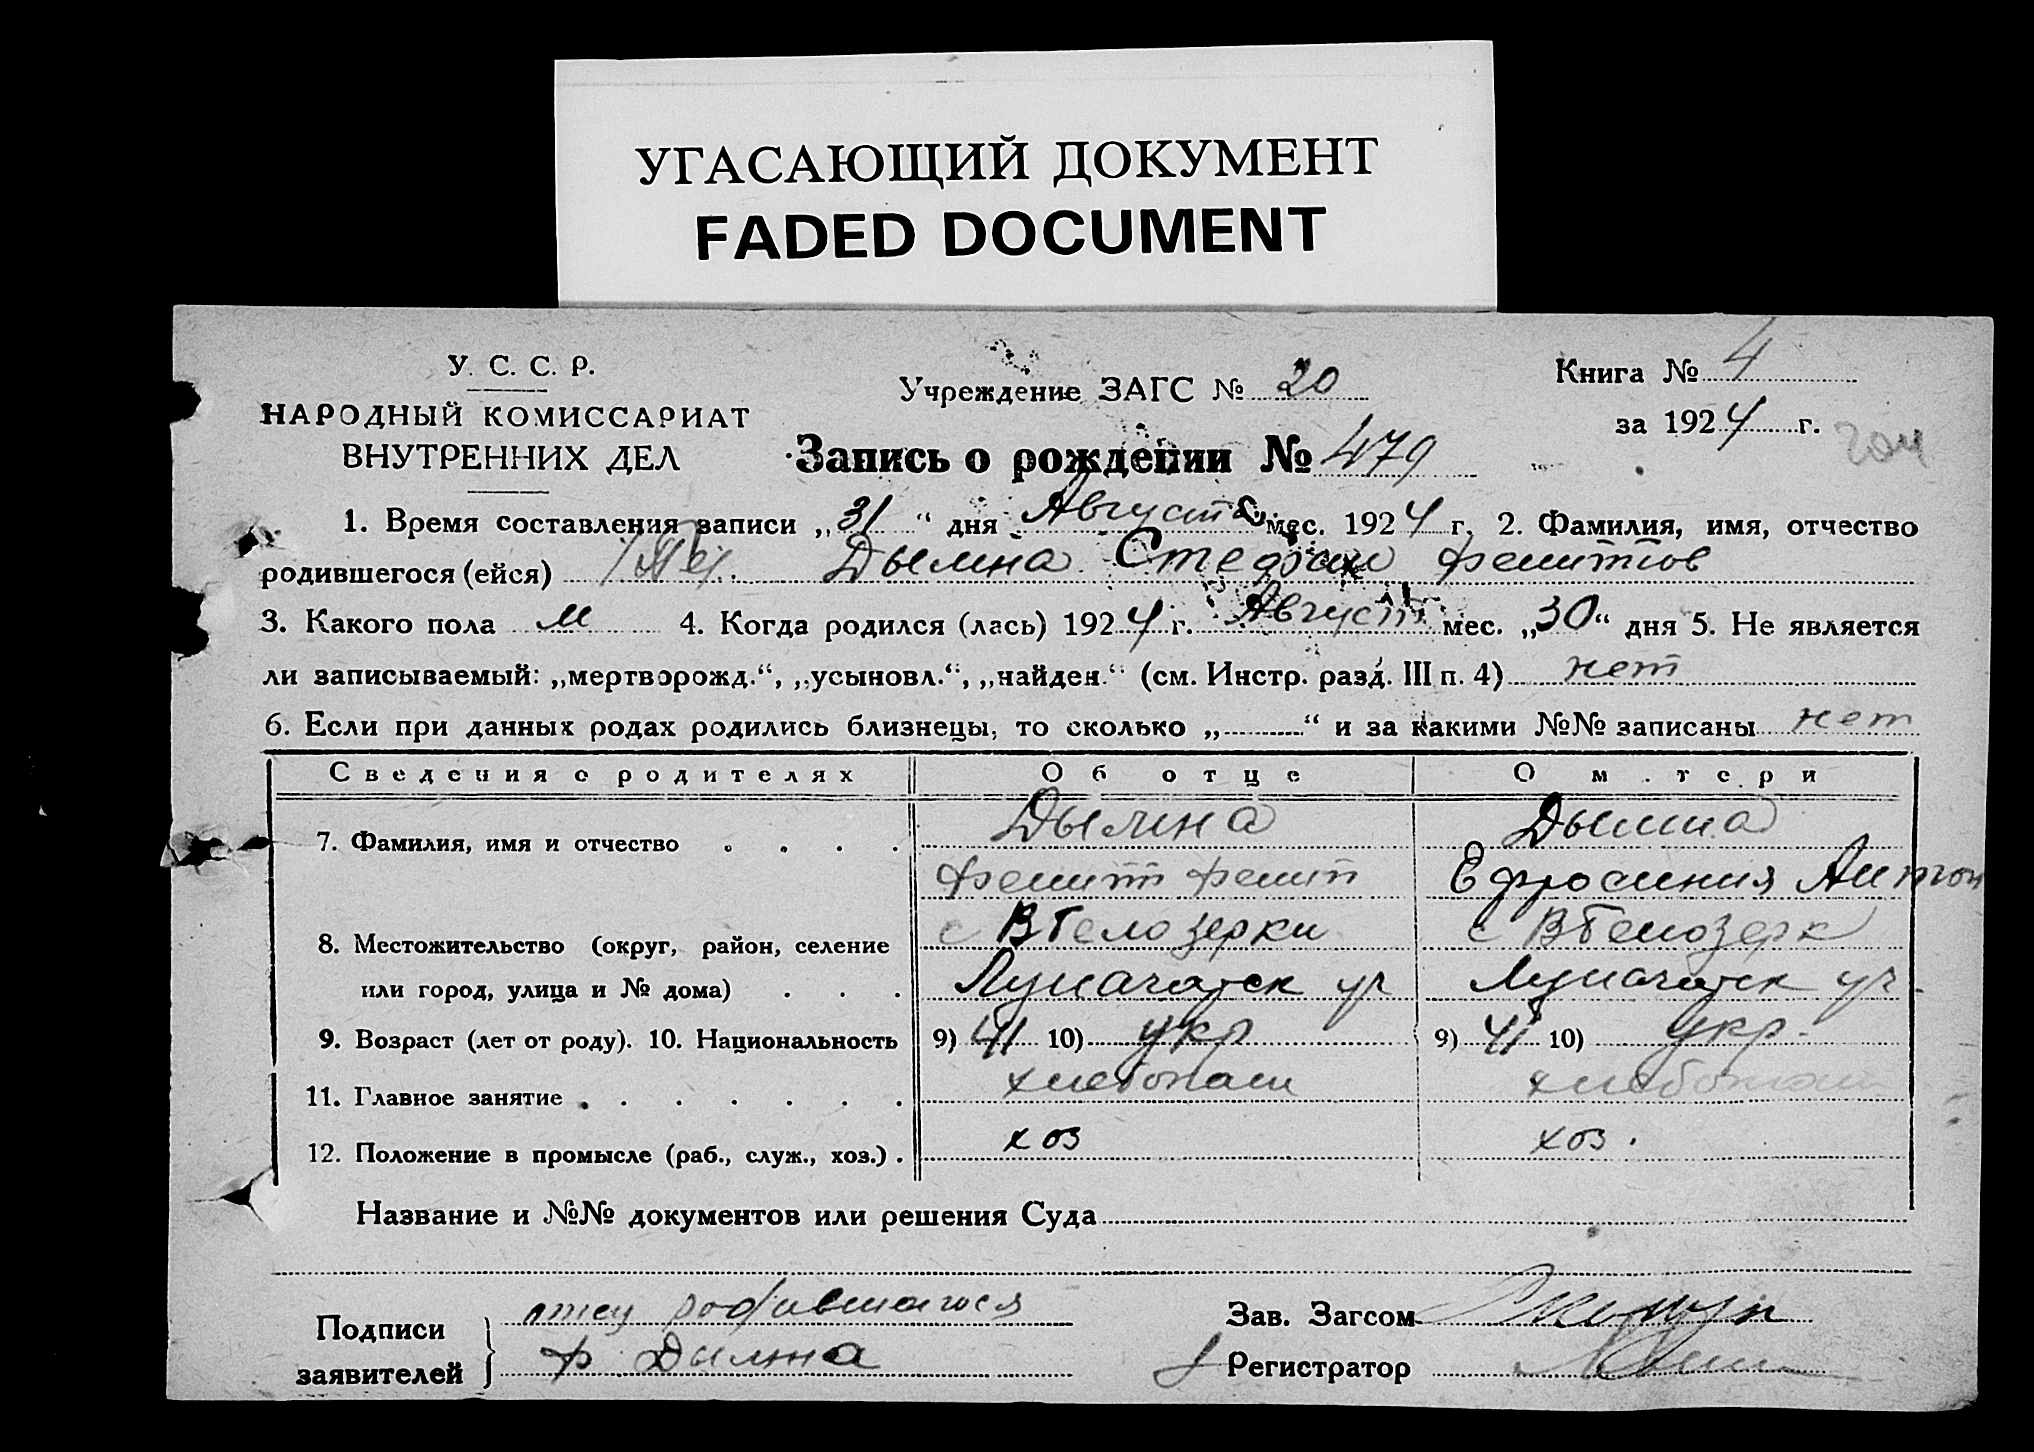 УГАСАЮЩИЙ ДОКУМЕНТ
FADED DOCUMENT
У. С. С. Р.
НАРОДНЫЙ КОМИССАРИАТ
ВНУТРЕННИХ ДЕЛ
Учреждение ЗАГС № 20
Книга № 4
за 1924 г.
Запись о рождении № 479
1. Время составления записи „31“ дня Августа мес. 1924 г. 2. Фамилия, имя, отчество
родившегося (ейся) Дымна Стефан
3. Какого пола м 4. Когда родился (лась) 1924 г. Август мес. „30“ дня 5. Не является
ли записываемый: „мертворожд.“, „усыновл.“, „найден.“ (см. Инстр. разд. III п. 4) нет
6. Если при данных родах родились близнецы, то сколько „..........“ и за какими №№ записаны нет
Сведения о родителях Об отце О матери
7. Фамилия, имя и отчество Дымна Дымна
Ефросиния Антон
8. Местожительство (округ, район, селение с ВБелозерки с ВБелозерк
или город, улица и № дома)
9. Возраст (лет от роду). 10. Национальность 9) 41 10) укр 9) 41 10) укр.
11. Главное занятие хлебопаш хлебопаш
12. Положение в промысле (раб., служ., хоз.) хоз хоз.
Название и №№ документов или решения Суда
Подписи заявителей отец родившагося
Ф Дымна
Зав. Загсом
Регистратор